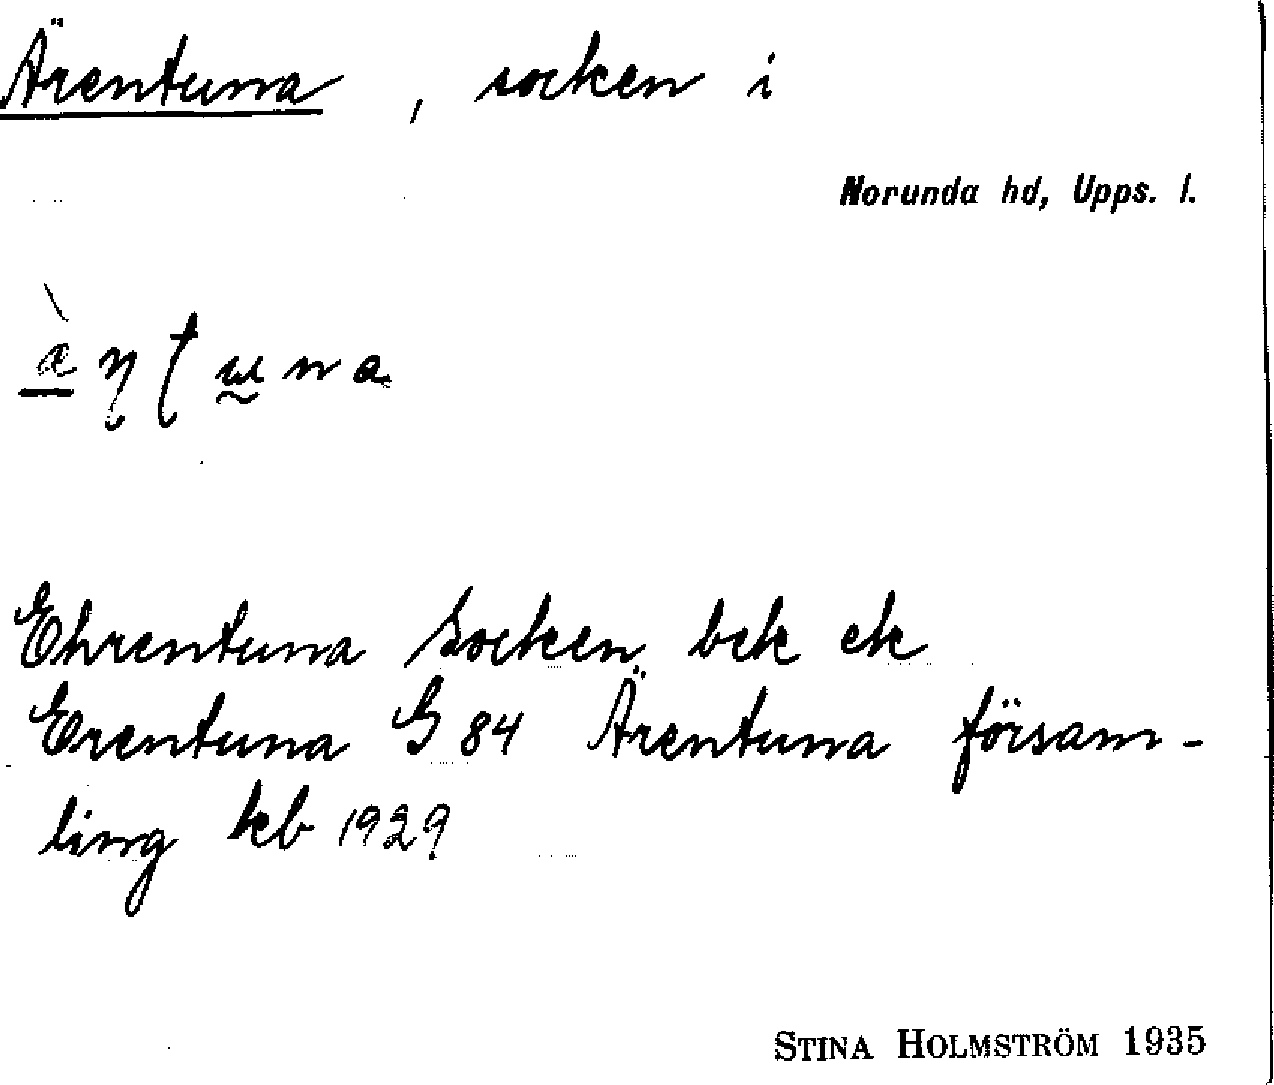 Ärentuna, socken i
Norunda hd, Upps. l.
Ehrentuna Socken bek ek
Erentuna G 84 Ärentuna försam-
ling kb 1929
STINA HOLMSTRÖM 1935